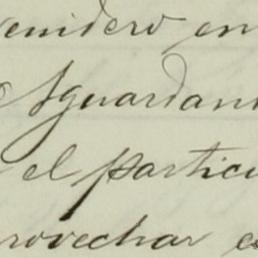 venidero en
Aguardan
el particu
rovechar e